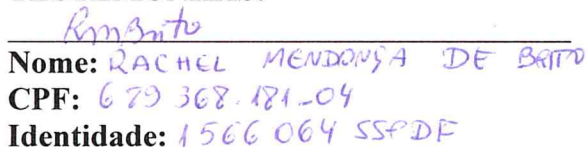 RmBrito
Nome: RACHEL MENDONÇA DE BRITO
CPF: 679 368.181-04
Identidade: 1566064 SSPDF